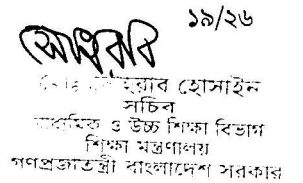 ১৯/২৬
হোসাইন
সচিব
মাধ্যমিক ও উচ্চ শিক্ষা বিভাগ
শিক্ষা মন্ত্রণালয়
গণপ্রজাতন্ত্রী বাংলাদেশ সরকার